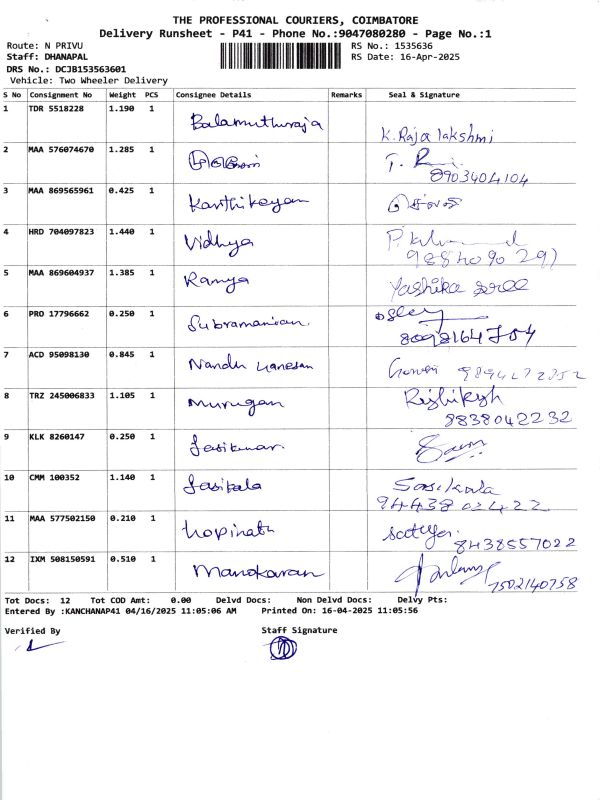 THE PROFESSIONAL COURIERS, COIMBATORE
Delivery Runsheet - P41 - Phone No.:9047080280 - Page No.:1
Route: N PRIVU RS No.: 1535636
Staff: DHANAPAL RS Date: 16-Apr-2025
DRS No.: DCJB153563601
Vehicle: Two Wheeler Delivery
S No Consignment No Weight PCS Consignee Details Remarks Seal & Signature
1 TDR 5518228 1.190 1 Balamuthuraja K. Rajalakshmi
2 MAA 576074670 1.285 1 T.
8903404104
3 MAA 869565961 0.425 1 Karthikeyan
4 HRD 704097823 1.440 1 Vidhya
5 MAA 869604937 1.385 1 Ramya Yashika sree
6 PRO 17796662 0.250 1 Subramanian
8098164704
7 ACD 95098130 0.845 1 Nandhu Ganesan
8 TRZ 245006833 1.105 1 Murugan Rishikesh
8838042232
9 KLK 8260147 0.250 1 Sasikumar
10 CMM 100352 1.140 1 Sasikala Sasikala
11 MAA 577502150 0.210 1 Gopinath Sathya
8438557022
12 IXM 508150591 0.510 1 Manokaran
7502140758
Tot Docs: 12 Tot COD Amt: 0.00 Delvd Docs: Non Delvd Docs: Delvy Pts:
Entered By :KANCHANAP41 04/16/2025 11:05:06 AM Printed On: 16-04-2025 11:05:56
Verified By Staff Signature